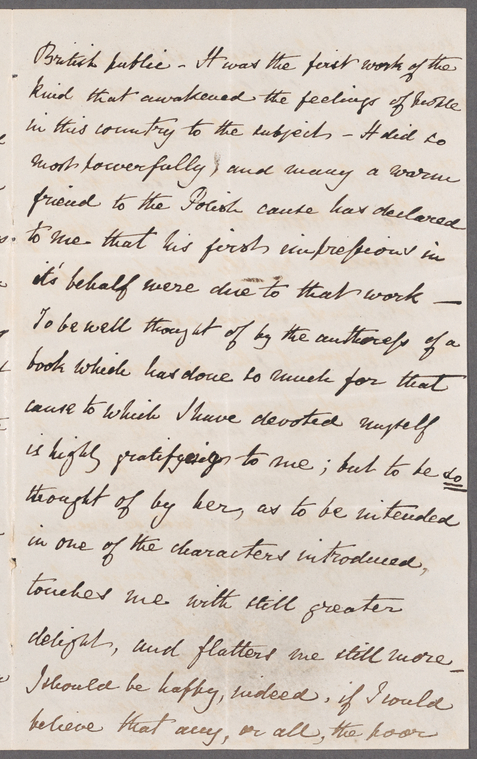 British public - It was the first work of the
kind that awakened the feelings of people
in this country to the subject - It did so
most powerfully, and many a warm
friend to the Polish cause has declared
to me that his first impressions in
it's behalf were due to that work —
To be well thought of by the authoress of a
book which has done so much for that
cause to which I have devoted myself
is highly gratifying to me; but to be so
thought of by her, as to be intended
in one of the characters introduced,
touches me with still greater
delight, and flatters me still more_
I should be happy, indeed, if I could
believe that any, or all, the poor